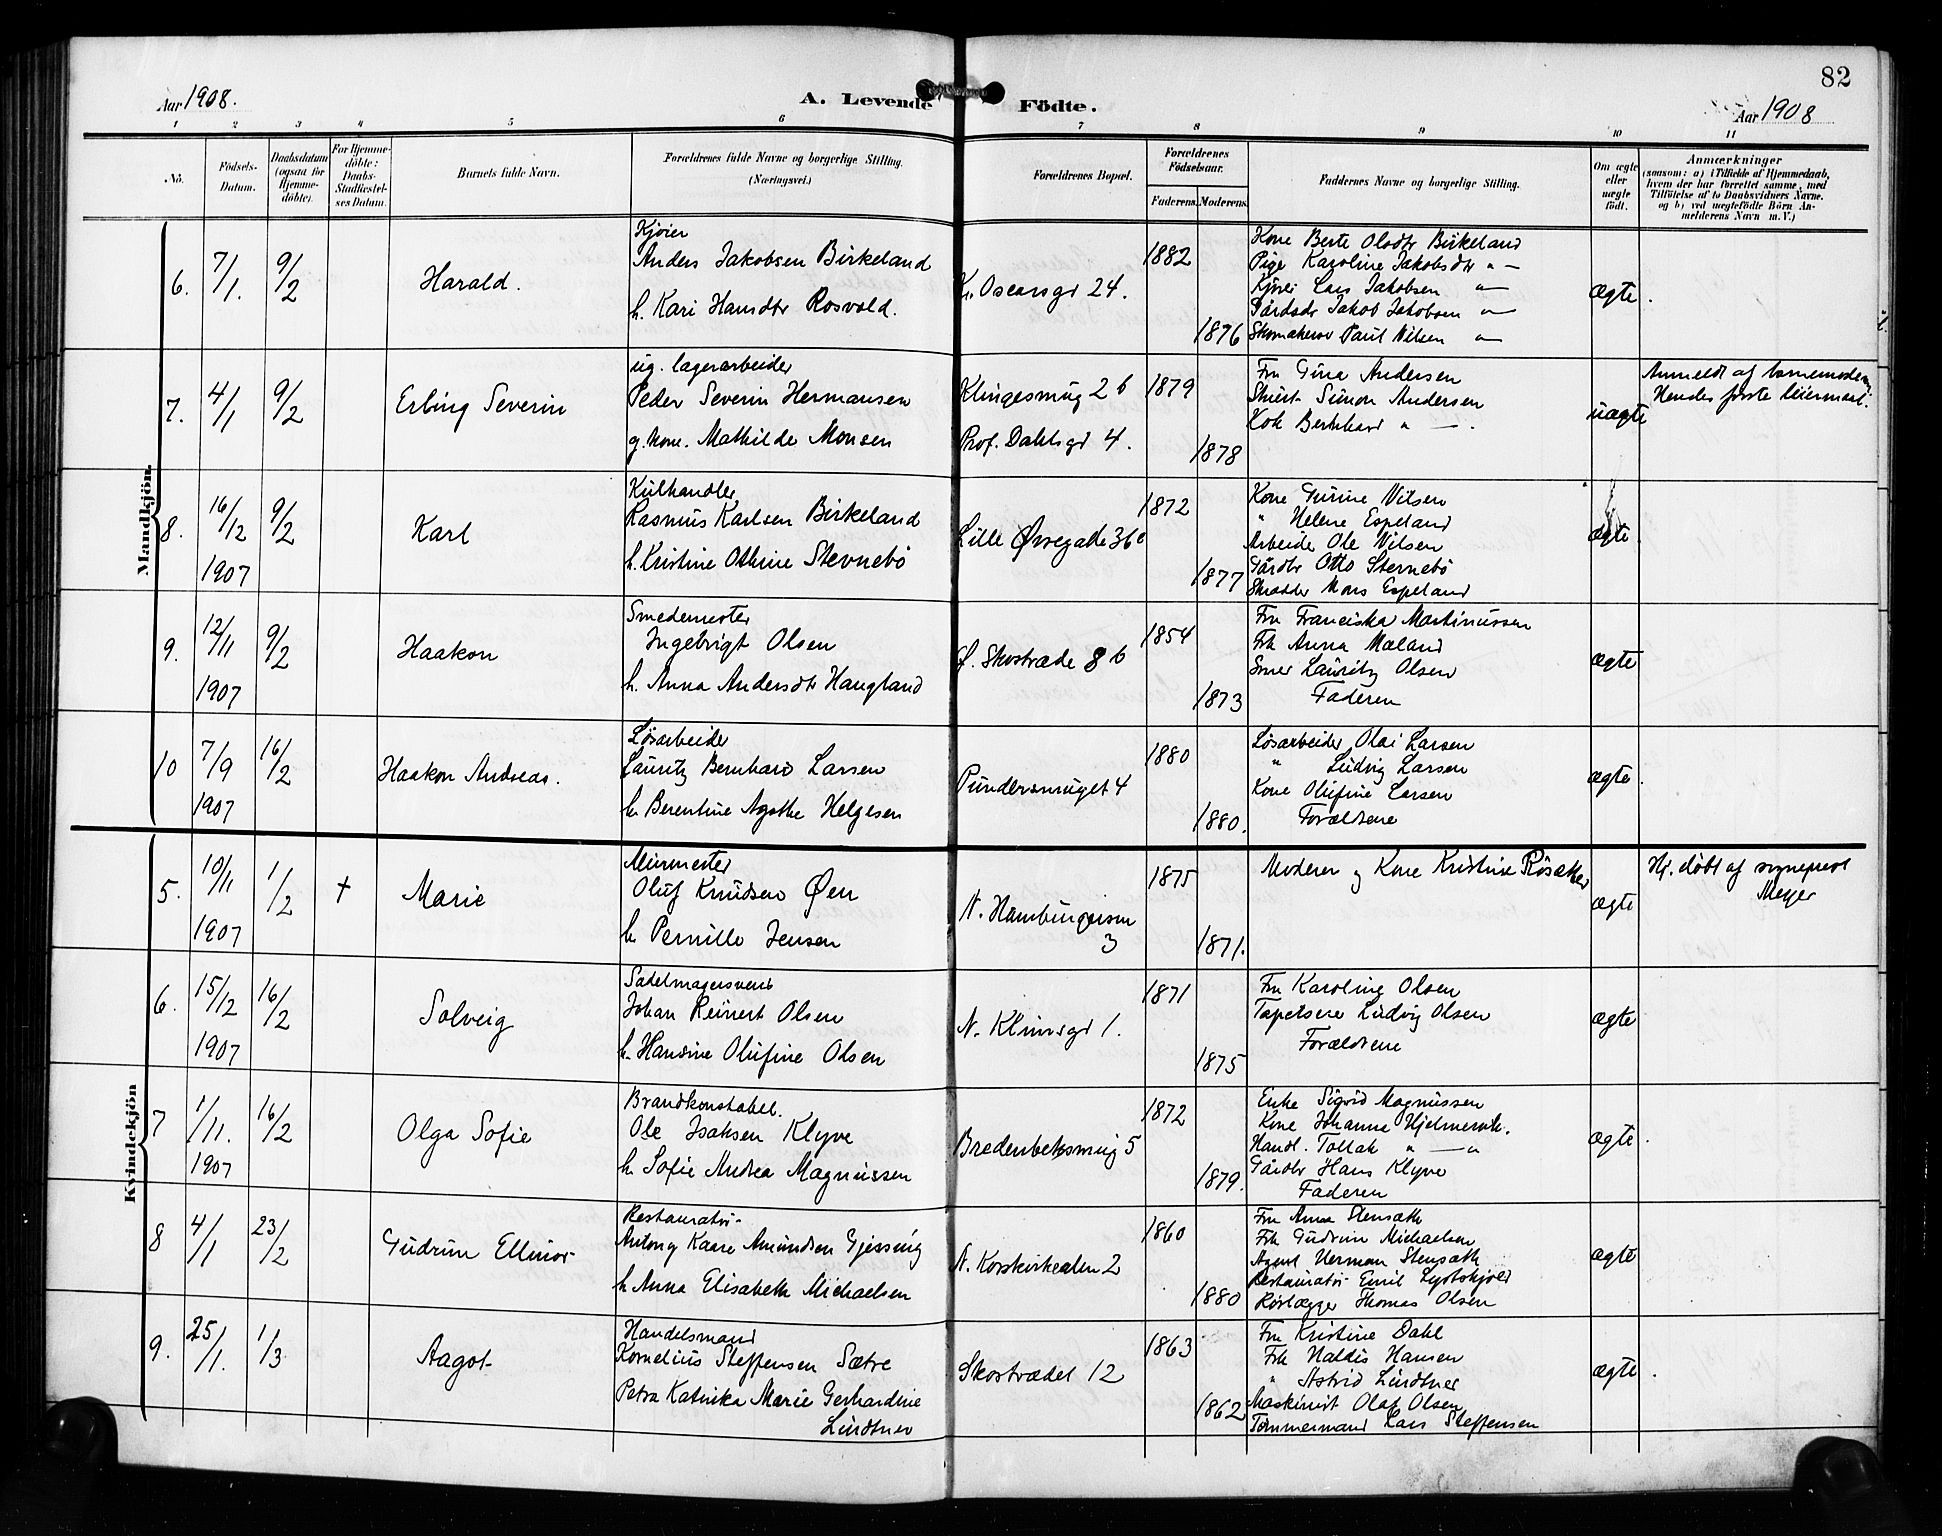 82
Aar 1908.
A. Levende Födte.
Aar 1908
1 2 3 4 5 6 7 8 9 10 11
Nö.
Födsels-Datum.
Daabsdatum (ogsaa for Hjemme-döbte).
For Hjemme-döbte: Daabs-Stadfæstel-ses Datum.
Barnets fulde Navn.
Forældrenes fulde Navne og borgerlige Stilling. (Næringsvei.)
Forældrenes Bopæl.
Forældrenes Födselsaar.
Faderens. Moderens.
Faddernes Navne og borgerlige Stilling.
Om ægte eller uægte födt.
Anmærkninger
(saasom: a) i Tilfælde af Hjemmedaab, hvem der har forrettet samme, med Tilföielse af to Daabsvidners Navne. og b) ved uægtefödte Börn An-melderens Navn m. V.)
Mandkjön.
6. 7/1. 9/2 Harald.
Kjører
Anders Jakobsen Birkeland
h. Kari Hansdtr Rosvold.
Kr. Oscarsgd 24.
1882
1876
Kone Berte Olsdtr Birkeland
Pige Karoline Jakobsdtr " —
Kjører Lars Jakobsen " —
Gårdbr Jakob Jakobsen " —
Skomakersv Paul Nilsen " —
ægte.
7. 4/1 9/2 Erling Severin
ug. lagerarbeider
Peder Severin Hermansen
g. kone. Mathilde Monsen
Klingesmug 2 b
Prof. Dahlsgd 4.
1879
1878
Fru Gina Andersen
Stuert Simon Andersen
Kok Bernhard " —.
uægte
Anmeldt af barnemoderen
Hendes første leiermaal.
8. 16/12 1907 9/2 Karl
Kulhandler
Rasmus Karlsen Birkeland
h. Kristine Othine Stevnebö
Lille Øvregade 36 c
1872
1877
Kone Gurine Nilsen
" Helene Espeland
Arbeider Ole Nilsen
Gårdbr Otto Sternebö
Skrædder Mons Espeland
ægte.
9. 12/11 1907 9/2 Haakon
Smedemester
Ingebrigt Olsen
h. Anna Andersdtr Haugland
Ø. Skostræde 8 b
1854
1873
Fru Franciska Martinussen
Frk Anna Mæland
Snør Lauritz Olsen
Faderen
ægte
10 7/9 1907 16/2 Haakon Andreas.
Løsarbeider
Lauritz Bernhard Larsen
h. Berentine Agathe Helgesen
Pundersmuget 4
1880
1880.
Løsarbeider Olai Larsen
" Ludvig Larsen
Kone Olufine Larsen
Forældrene
ægte.
Kvindekjön
5. 10/11 1907 1/2 + Marie
Murmester
Oluf Knudsen Øen
h. Pernille Jensen
N. Hamburgersm
3
1875
1871.
Moderen og Kone Kristine Røsæther
ægte
Hj. døbt af sogneprest
Meyer
6. 15/12 1907 16/2 Solveig
Sadelmagersvend
Johan Reinert Olsen
h. Handine Olufine Olsen
N. Klumsgd 1.
1871
1875
Fru Karoline Olsen
Tapetsere Ludvig Olsen
Forældrene
ægte
7 1/11. 1907 16/2 Olga Sofie
Brandkonstabel.
Ole Isaksen Klyve
h. Sofie Andrea Magnussen
Bredenbeksmug 5
1872
1879.
Enke Sigrid Magnussen
Kone Johanna Hjelmervik.
Handl. Tollak " — "
Gårdbr Hans Klyve
Faderen
ægte.
8 4/1 23/2 Gudrun Ellinor
Restauratør
Antony Kaare Amundsen Gjessing
h. Anna Elisabeth Michaelsen
N. Korskirkealm 2
1860
1880
Fru Anna Stensæth
Frk Gudrun Michaelsen
Agent Herman Stensæth
Restauratør Emil Lystskjold
Rørlægger Thomas Olsen
ægte
9. 25/1. 1/3 Aagot
Handelsmand
Kornelius Steffensen Sætre
Petra Katinka Marie Gerhardine
Lindtner
Skostrædet 12
1863
1862
Fru Kristine Dahl
Frk Haldis Hansen
" Astrid Lindtner
Maskinist Olaf Olsen
Tømmermand Lars Steffensen
ægte.